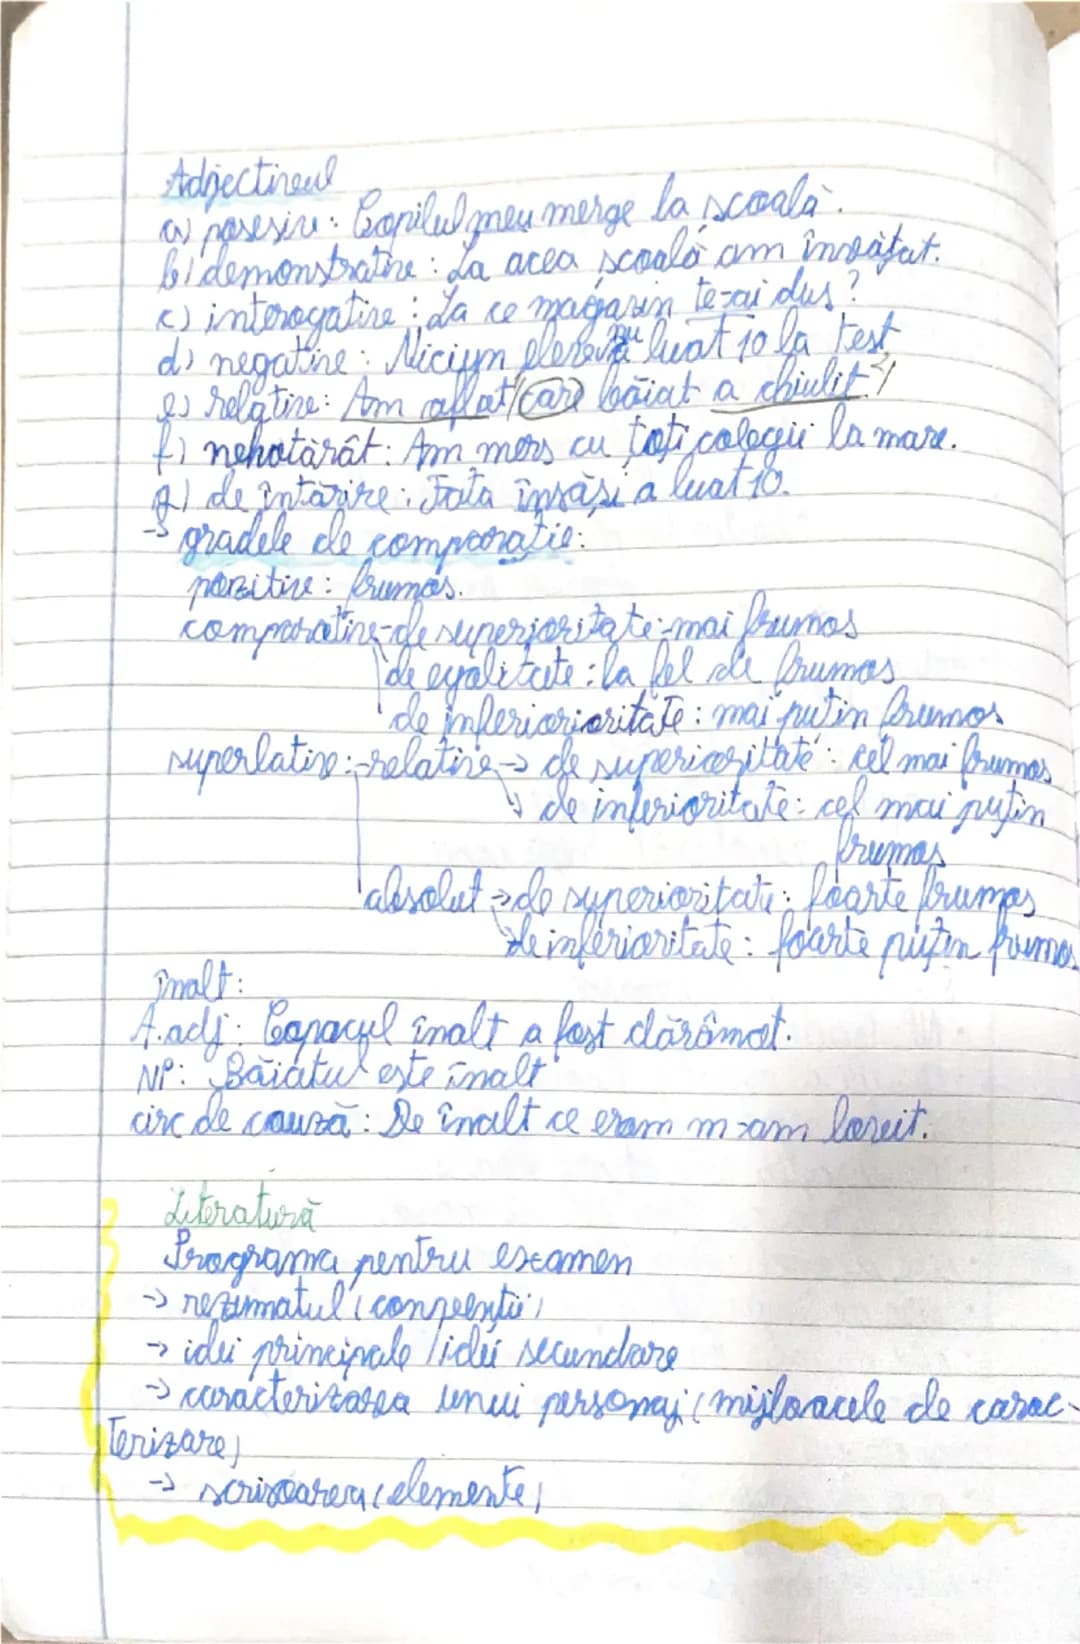 Adjectivul
a) posesiv: Copilul meu merge la școală.
b) demonstrativ: La acea școală am învățat.
c) interogativ: La ce magazin te-ai dus?
d) negativ: Niciun elev nu a luat 10 la test
e) relativ: Am aflat/ care băiat a chiulit./
f) nehotărât: Am mers cu toți colegii la mare.
g) de întărire: Fata însăși a luat 10.
→ gradele de comparație:
pozitiv: frumos.
comparativ-de superioritate-mai frumos
de egalitate: la fel de frumos
de inferiorioritate: mai puțin frumos
superlativ:-relativ→ de superioritate: cel mai frumos
↳ de inferioritate: cel mai puțin
frumos
absolut →de superioritate: foarte frumos
de inferioritate: foarte puțin frumos
înalt:
A.adj: Copacul înalt a fost dărâmat.
NP: Băiatul este înalt
circ de cauză: De înalt ce eram m-am lovit.
Literatură
Programa pentru examen
→ rezumatul (conpeenții)
→ idei principale / idei secundare
→ caracterizarea unui personaj (mijloacele de carac-
terizare)
→ scrisoarea (elemente)